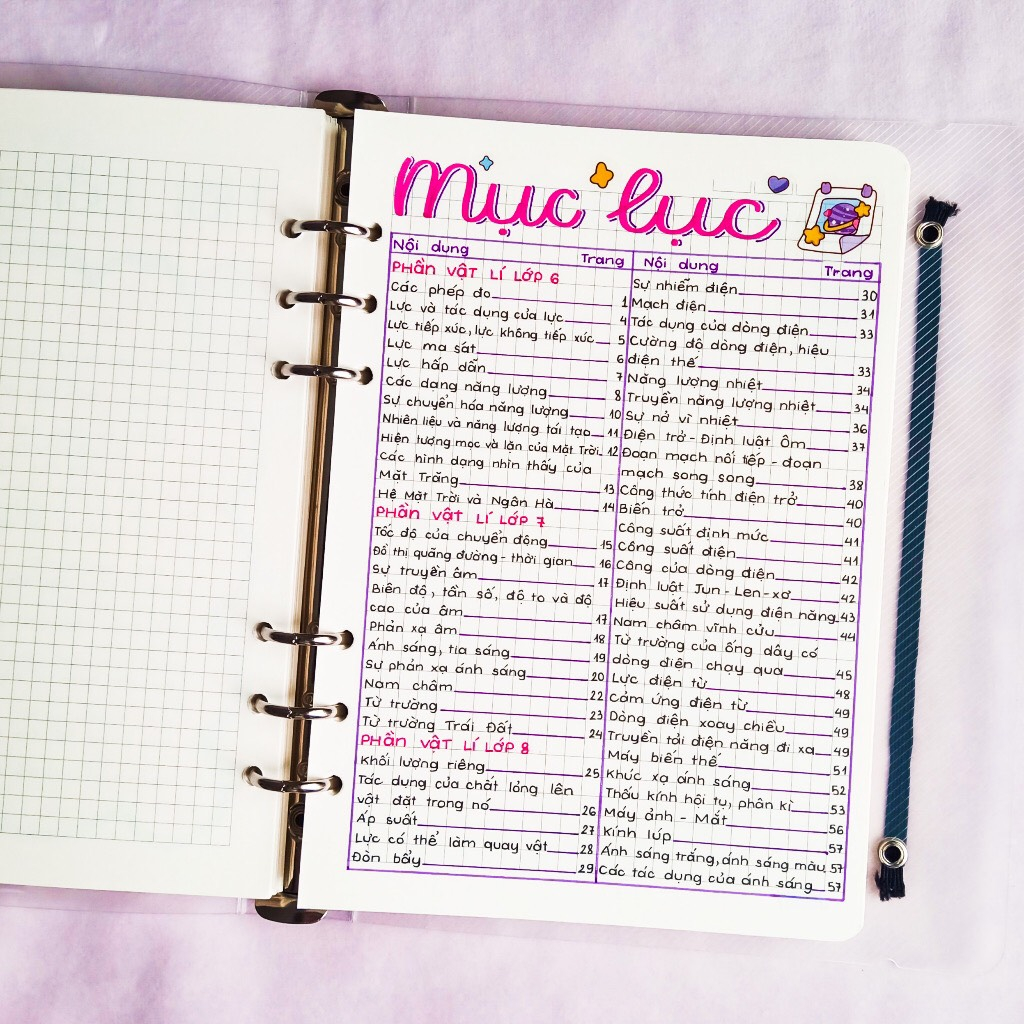 Mục lục
Nội dung Trang
PHẦN VẬT LÍ LỚP 6
Các phép đo 1
Lực và tác dụng của lực 4
Lực tiếp xúc, lực không tiếp xúc 5
Lực ma sát 6
Lực hấp dẫn 7
Các dạng năng lượng 8
Sự chuyển hóa năng lượng 10
Nhiên liệu và năng lượng tái tạo 11
Hiện tượng mọc và lặn của Mặt Trời 12
Các hình dạng nhìn thấy của
Mặt Trăng 13
Hệ Mặt Trời và Ngân Hà 14
PHẦN VẬT LÍ LỚP 7
Tốc độ của chuyển động 15
Đồ thị quãng đường - thời gian 16
Sự truyền âm 17
Biên độ, tần số, độ to và độ
cao của âm 17
Phản xạ âm 18
Ánh sáng, tia sáng 19
Sự phản xạ ánh sáng 20
Nam châm 22
Từ trường 23
Từ trường Trái Đất 24
PHẦN VẬT LÍ LỚP 8
Khối lượng riêng 25
Tác dụng của chất lỏng lên
vật đặt trong nó 26
Áp suất 27
Lực có thể làm quay vật 28
Đòn bẩy 29
Nội dung Trang
Sự nhiễm điện 30
Mạch điện 31
Tác dụng của dòng điện 33
Cường độ dòng điện, hiệu
điện thế 33
Năng lượng nhiệt 34
Truyền năng lượng nhiệt 34
Sự nở vì nhiệt 36
Điện trở - Định luật Ôm 37
Đoạn mạch nối tiếp - đoạn
mạch song song 38
Công thức tính điện trở 40
Biến trở 40
Công suất định mức 41
Công suất điện 41
Công của dòng điện 42
Định luật Jun - Len - xơ 42
Hiệu suất sử dụng điện năng 43
Nam châm vĩnh cửu 44
Từ trường của ống dây có
dòng điện chạy qua 45
Lực điện từ 48
Cảm ứng điện từ 49
Dòng điện xoay chiều 49
Truyền tải điện năng đi xa 49
Máy biến thế 51
Khúc xạ ánh sáng 52
Thấu kính hội tụ, phân kì 53
Máy ảnh - Mắt 56
Kính lúp 57
Ánh sáng trắng, ánh sáng màu 57
Các tác dụng của ánh sáng 57